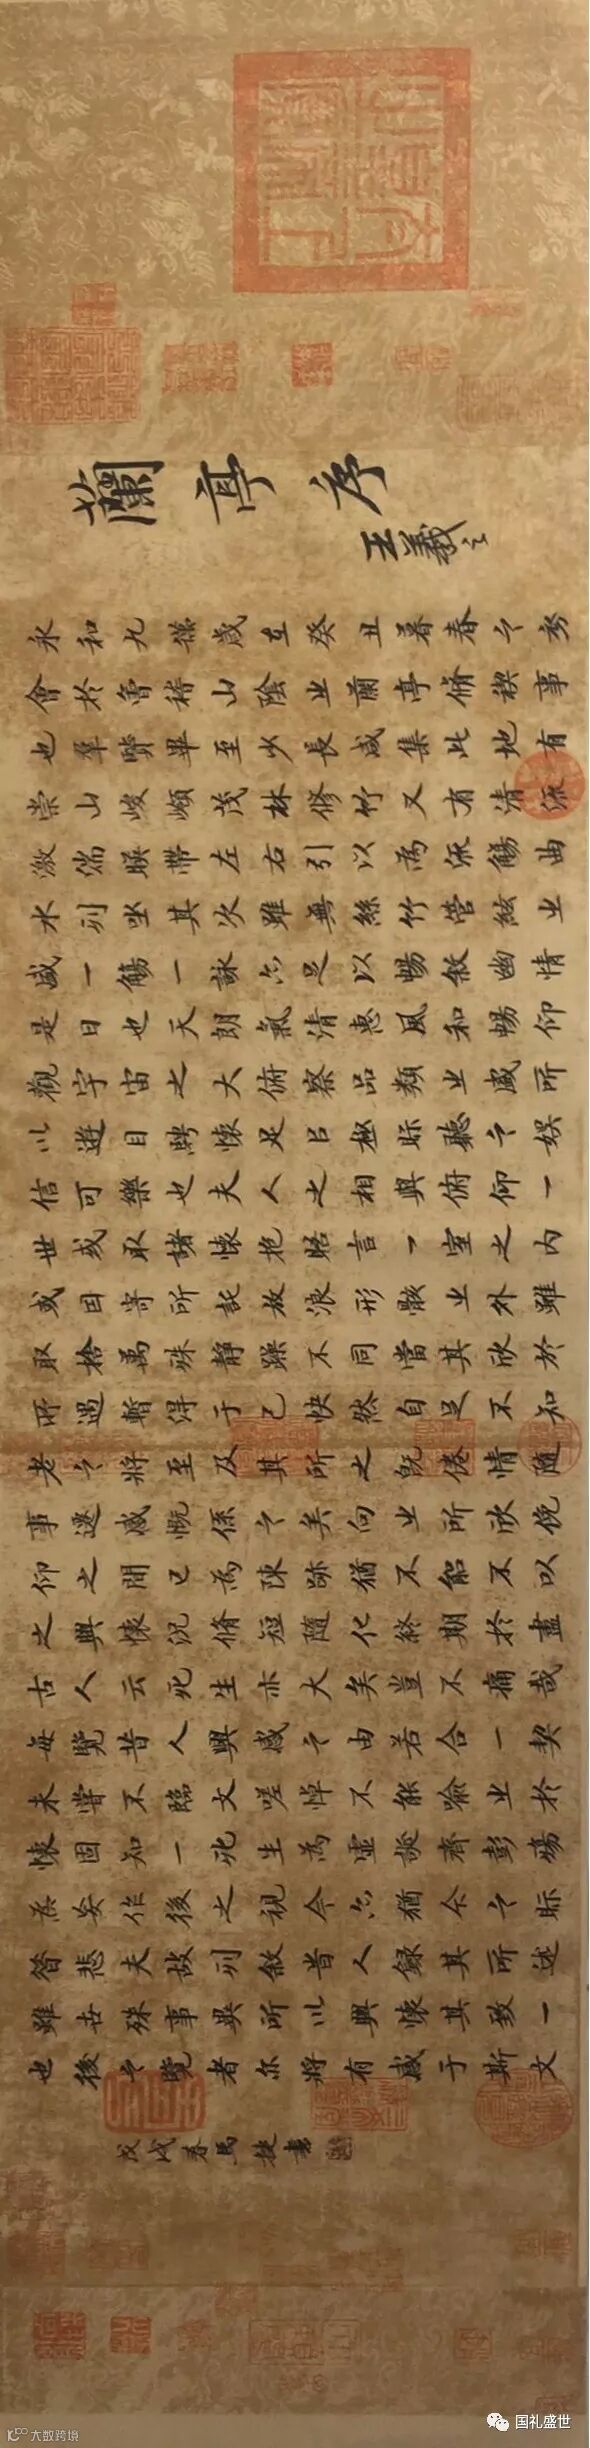 蘭亭序
王羲之
永和九年歲在癸丑暮春之初
會於會稽山陰之蘭亭脩稧事
也羣賢畢至少長咸集此地有
崇山峻領茂林脩竹又有清流
激湍暎帶左右引以為流觴曲
水列坐其次雖無絲竹管絃之
盛一觴一詠亦足以暢敘幽情
是日也天朗氣清惠風和暢仰
觀宇宙之大俯察品類之盛所
以遊目騁懷足以極視聽之娛
信可樂也夫人之相與俯仰一
世或取諸懷抱晤言一室之內
或因寄所託放浪形骸之外雖
取捨萬殊靜躁不同當其欣於
所遇暫得于己快然自足不知
老之將至及其所之既倦情隨
事遷感慨係之矣向之所欣俛
仰之間已為陳跡猶不能不以
之興懷況脩短隨化終期於盡
古人云死生亦大矣豈不痛哉
每覽昔人興感之由若合一契
未嘗不臨文嗟悼不能喻之於
懷固知一死生為虛誕齊彭殤
為妄作後之視今亦猶今之視
昔悲夫故列敘昔人錄其所述
雖世殊事異所以興懷其致一
也後之覽者亦將有感于斯文
戊戌春馬捷書
大数跨境
国礼盛世